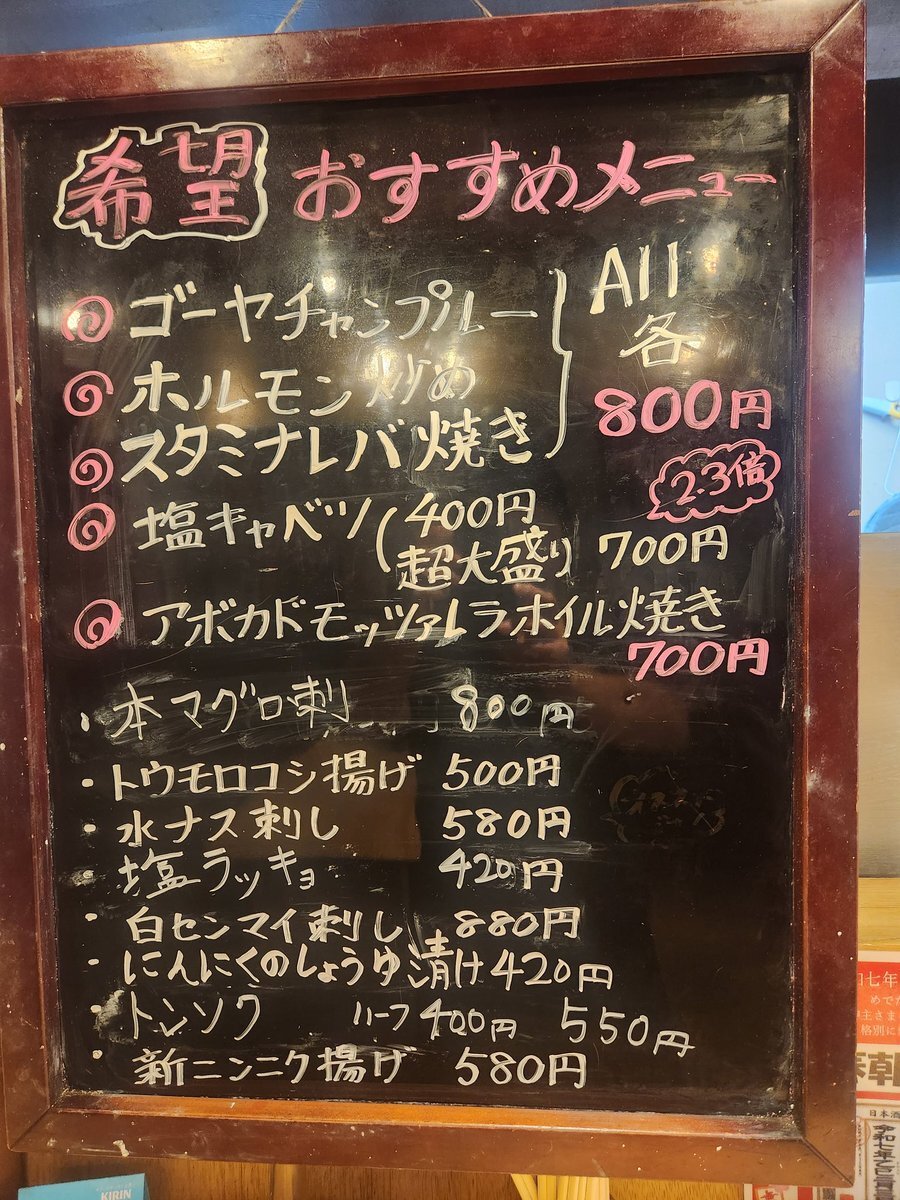 希望 おすすめメニュー
ゴーヤチャンプルー
ホルモン炒め
スタミナレバ焼き
All
各
800円
2.3倍
塩キャベツ(400円
超大盛り) 700円
アボカドモッツァレラホイル焼き
700円
・本マグロ刺 800円
・トウモロコシ揚げ 500円
・水ナス刺し 580円
・塩ラッキョ 420円
・白センマイ刺し 880円
・にんにくのしょうゆ漬け 420円
・トンソク ハーフ400円 550円
・新ニンニク揚げ 580円
KIRIN
七年
めでた
格別に
朝
日本酒